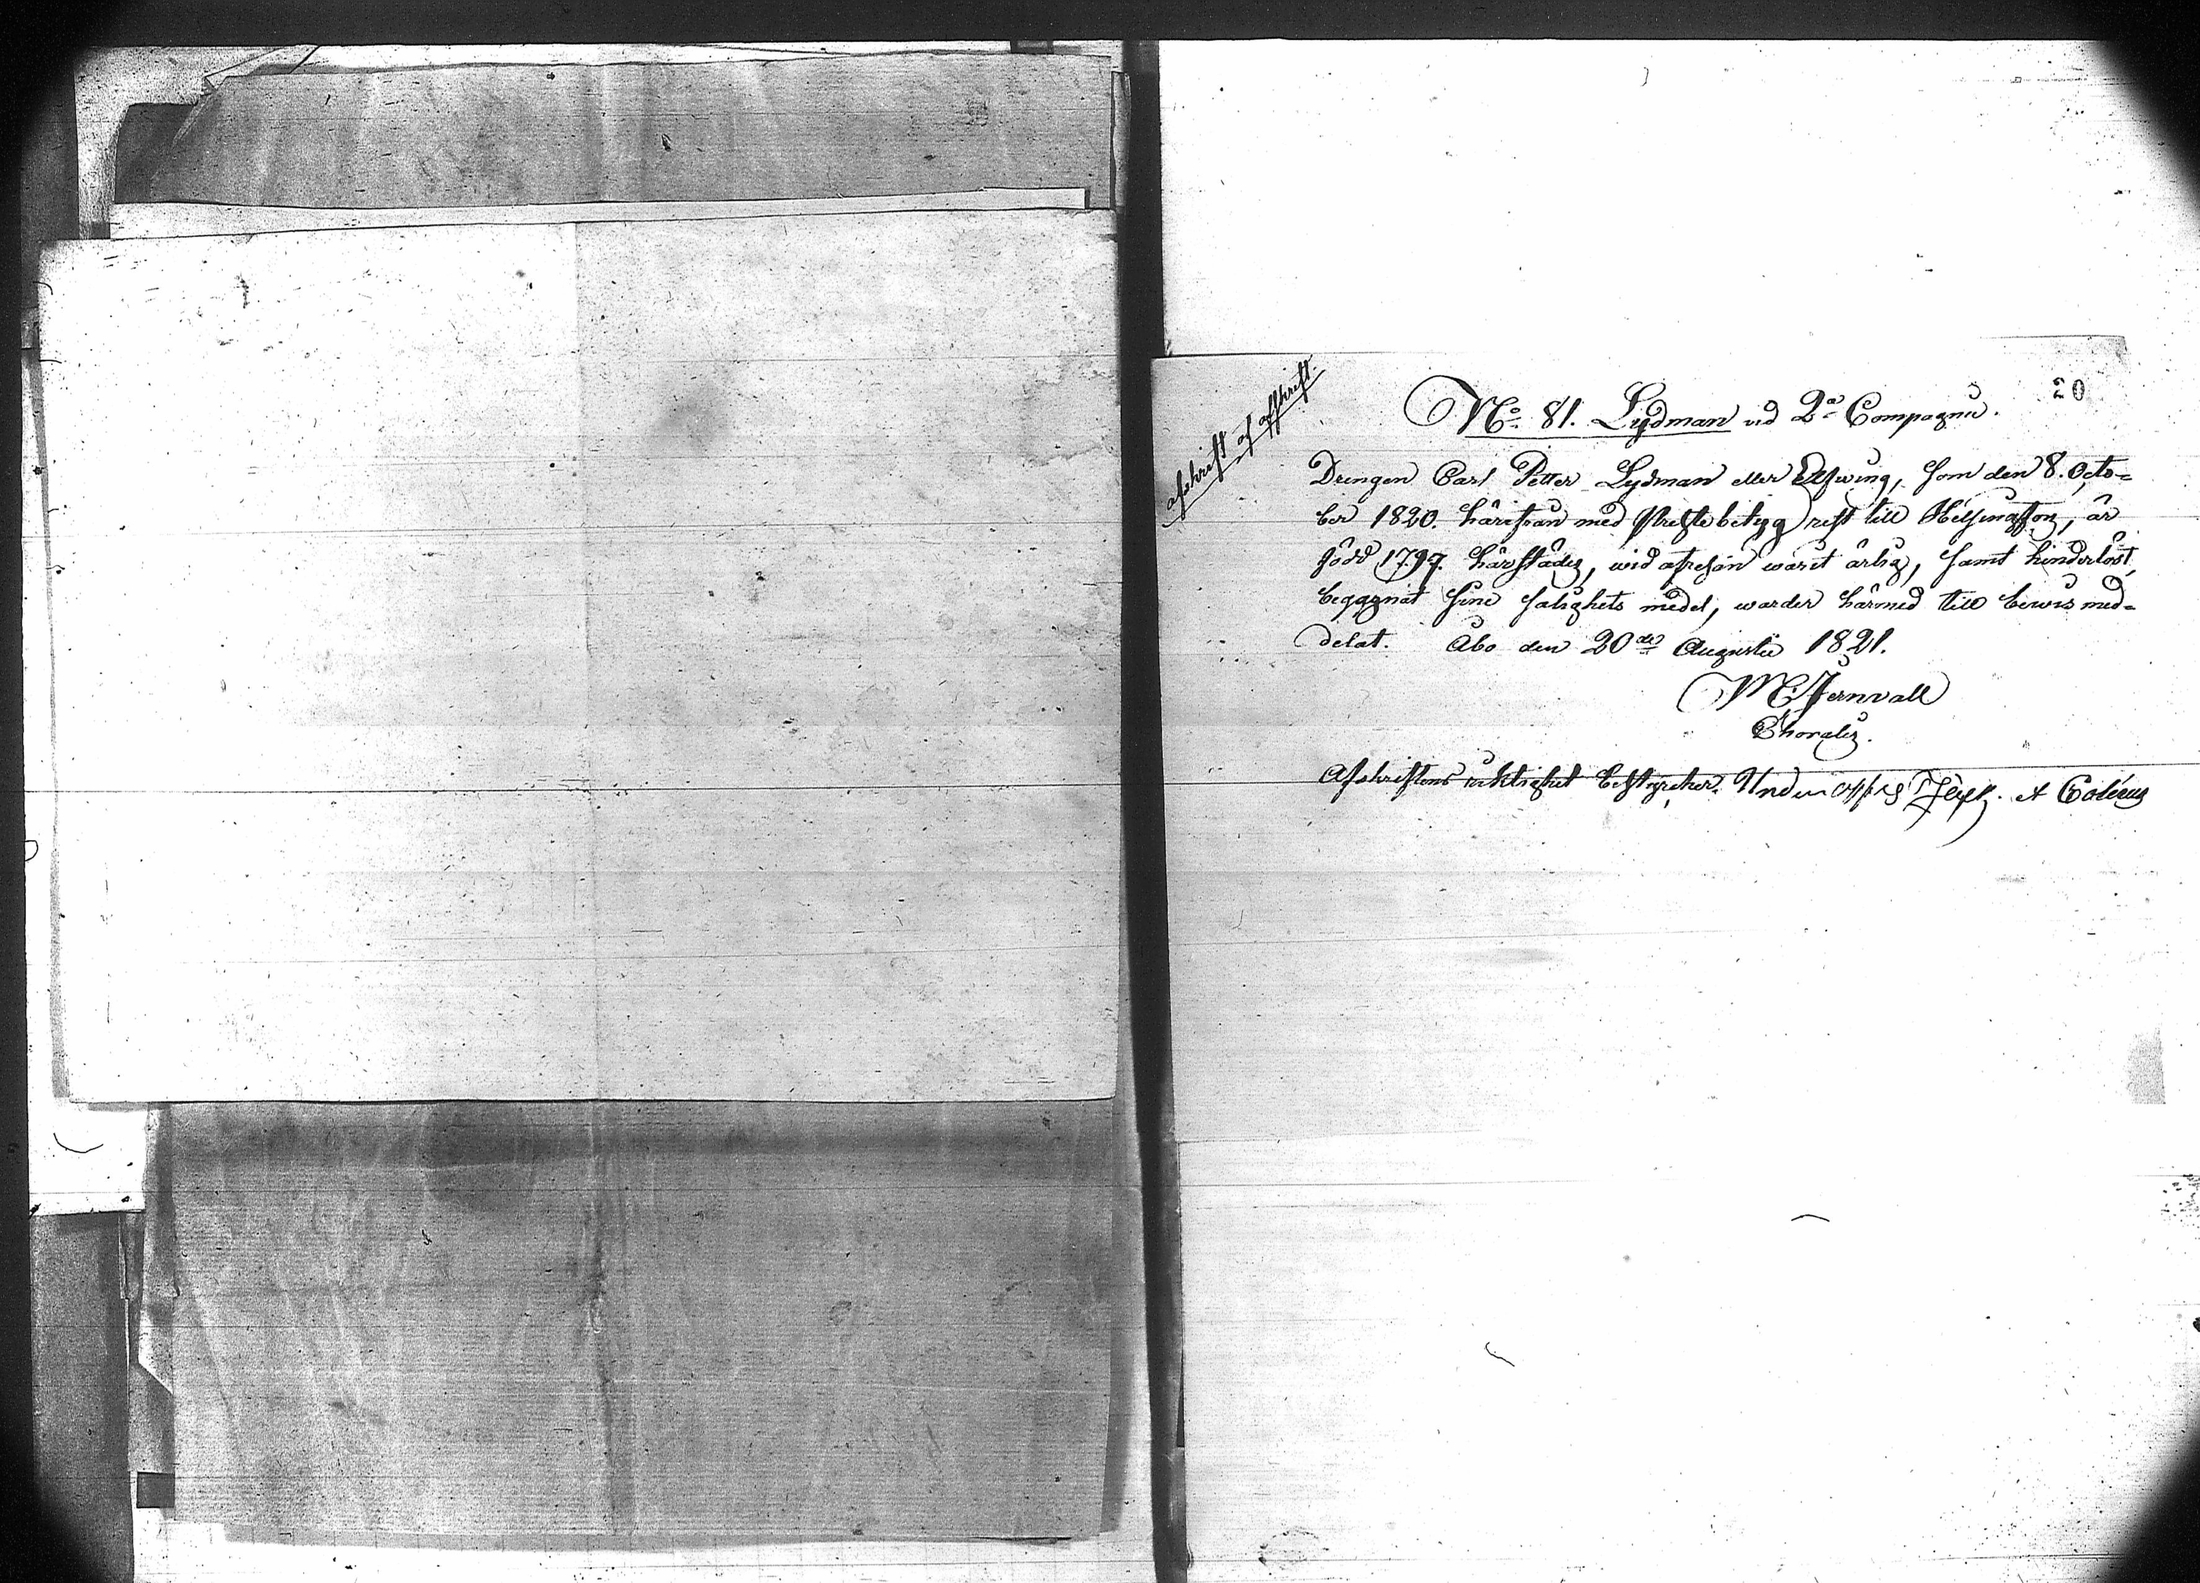 20
afskrift af afskrift.
No 81. Lydman vid 2a Compagnie.
Drengen Carl Petter Lydman eller Elfwing, som den 8. Octo-
ber 1820. härifrån med Prestebetyg rest till Helsingfors, är
född 1797. härstädes, wid afresan warit ärlig, samt hinderlöst
begagnat sine salighets medel; warder härmed till bewis med-
delat. Åbo den 20de Augustii 1821.
M Jernvall
Afskriftens riktighet bestyrcker.